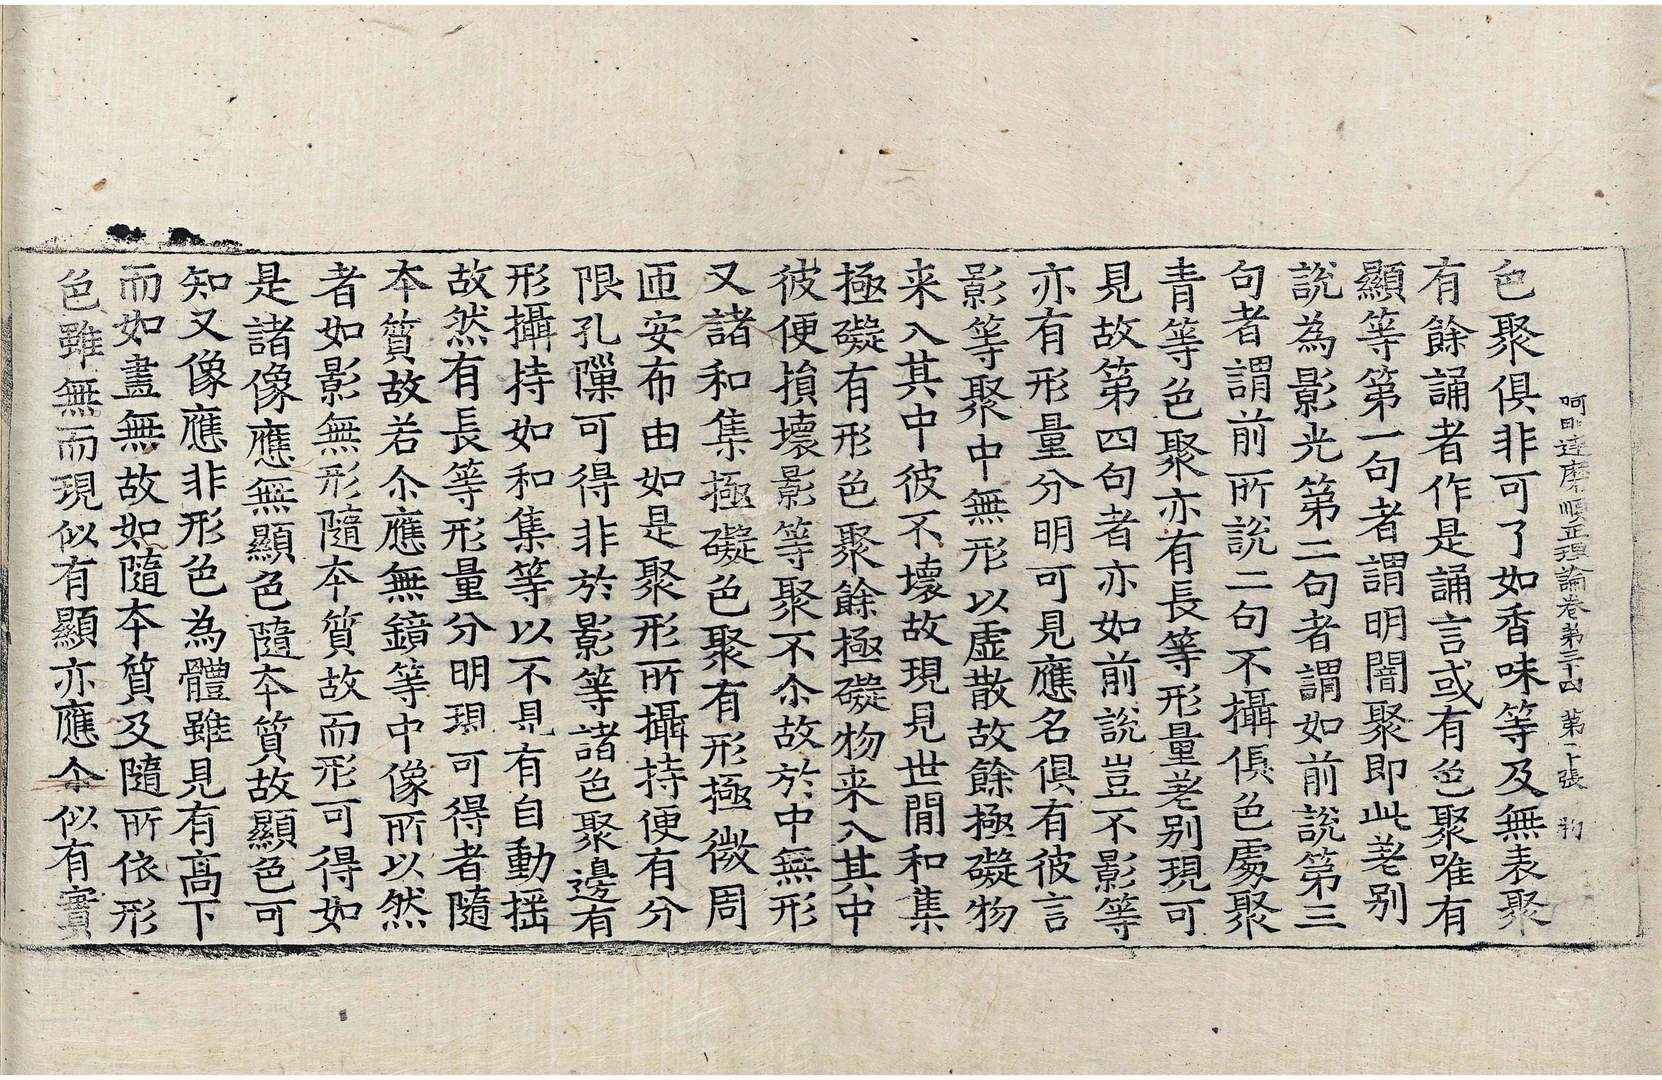 阿毗達磨順正理論卷第三十四 第十張
色聚俱非可了如香味等及無表聚
有餘誦者作是誦言或有色聚唯有
顯等第一句者謂明闇聚即此差別
說為影光第二句者謂如前說第三
句者謂前所說二句不攝俱色處聚
青等色聚亦有長等形量差別現可
見故第四句者亦如前說豈不影等
亦有形量分明可見應名俱有彼言
影等聚中無形以虛散故餘極礙物
来入其中彼不壞故現見世間和集
極礙有形色聚餘極礙物来入其中
彼便損壞影等聚不尒故於中無形
又諸和集極礙色聚有形極微周
匝安布由如是聚形所攝持便有分
限孔隟可得非於影等諸色聚邊有
形攝持如和集等以不見有自動搖
故然有長等形量分明現可得者隨
本質故若尒應無鏡等中像所以然
者如影無形隨本質故而形可得如
是諸像應無顯色隨本質故顯色可
知又像應非形色為體雖見有高下
而如畫無故如隨本質及隨所依形
色雖無而現似有顯亦應尒似有實